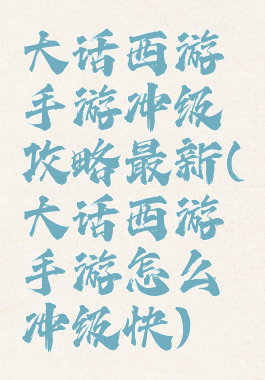 大话西游
手游冲级
攻略最新(
大话西游
手游怎么
冲级快)